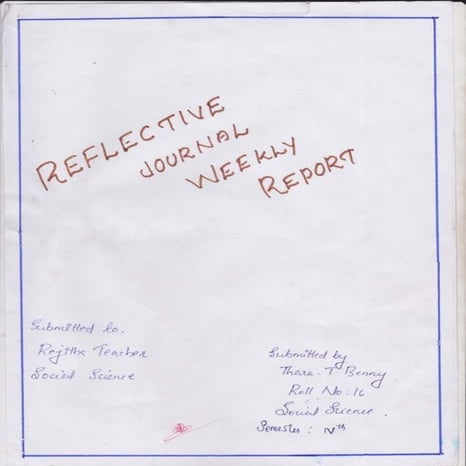 REFLECTIVE
JOURNAL
WEEKLY
REPORT
Submitted to,
Rejitha Teacher
Social Science
Submitted by
Thara. T Benny
Roll No: 16
Social Science.
Semester : IVth